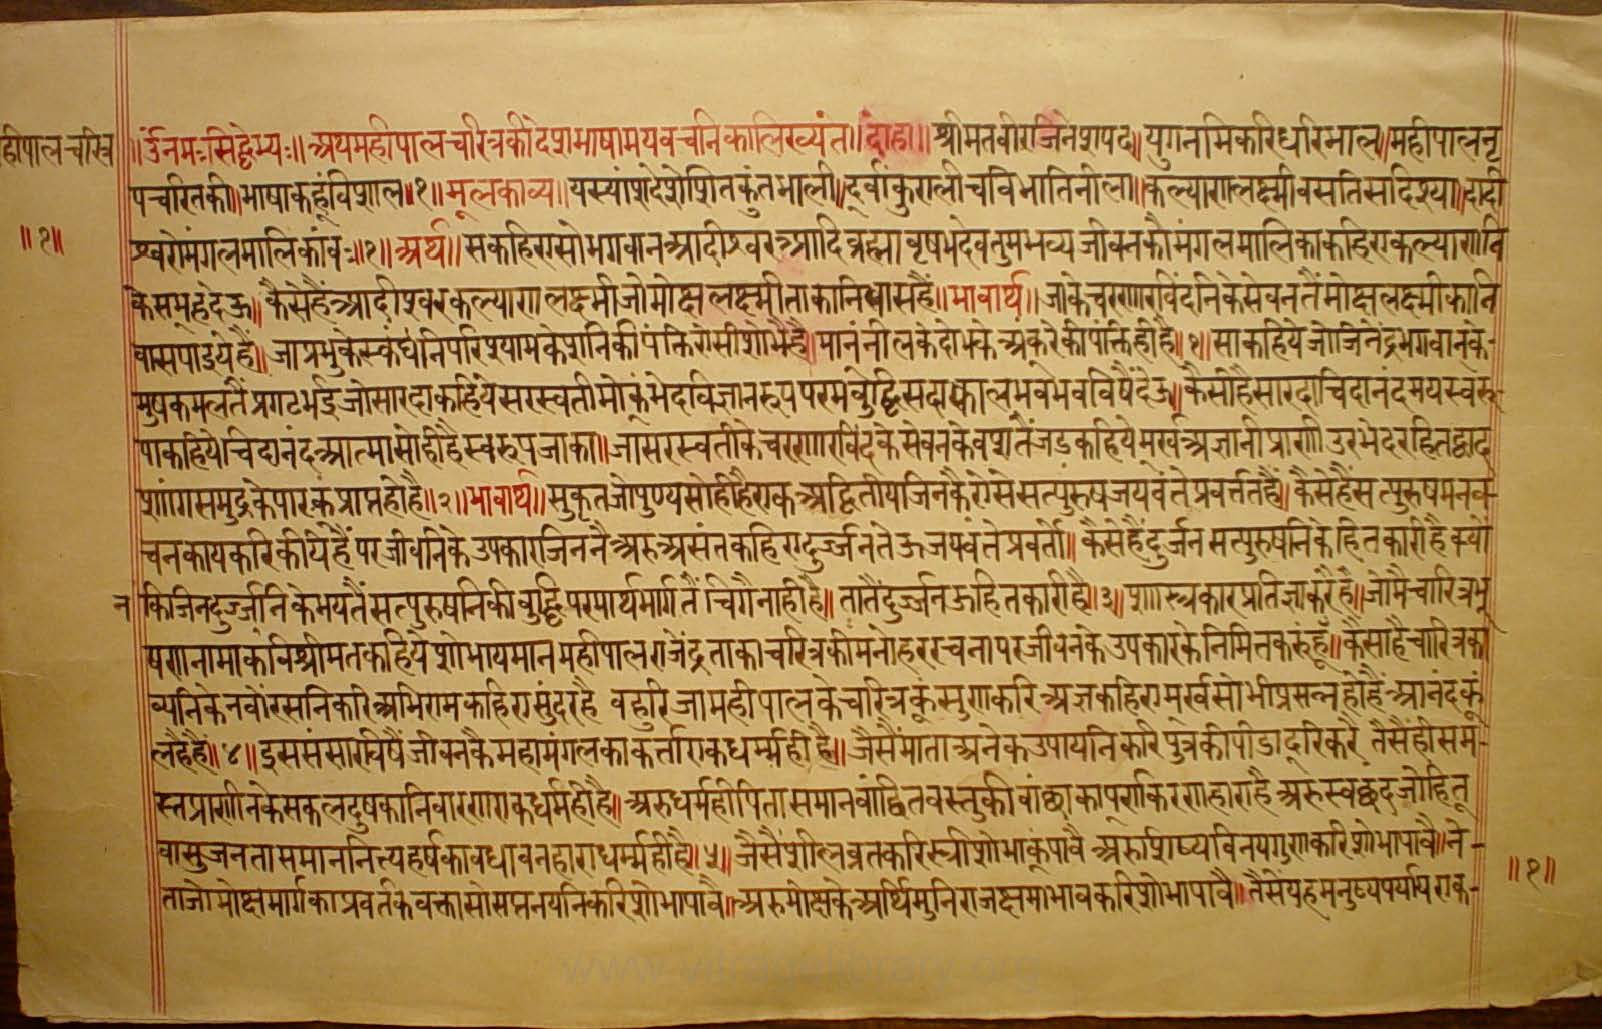 हीपाल चरित्र
॥ॐनमःसिद्धेभ्यः॥अथमहीपालचरित्रकीदेशभाषामयवचनिकालिख्यंत॥दोहा॥श्रीमतवीरजिनेशपद॥युगनमिकरिधरिभाल॥महीपालनृ
पचरितकी॥भाषाकहूंविशाल॥१॥मूलकाव्य॥यस्यांशदेशेशितकुंतभाली॥दूर्वांकुरालीचविभातिनीला॥कल्याणलक्ष्मीवसतिसदिश्या॥दादी
॥१॥
श्वरोमंगलमालिकांवः॥१॥अर्थ॥सकहिएसोभगवानआदीश्वरआदिब्रह्मावृषभदेवतुमभव्यजीवनकौमंगलमालिकाकहिएकल्याणनि
केसमूहदेऊ॥कैसेहैंआदीश्वरकल्याणलक्ष्मीजोमोक्षलक्ष्मीताकानिवासहैं॥भावार्थ॥जाकेचरणारविंदनिकेसेवनतैंमोक्षलक्ष्मीकानि
वासपाइयेहैं॥जाप्रभुकेस्कंधेनिपरिश्यामकेशनिकीपंक्तिऐसीशोभैहै॥मानंनीलकेदोभकेअकरेकीपंक्तिहीहै॥१॥साकहियेजोजिनेंद्रभगवानके-
मुषकमलतैंप्रगटभईजोसारदाकहियेसरस्वतीमोकुंभेदविज्ञानरूपपरमबुद्धिसदाकालभवभवविषैंदेऊ॥कैसीहैसारदाचिदानंदमयस्वरू-
पाकहियेचिदानंदआत्मासोहीहैस्वरूपजाका॥जासरस्वतीकेचरणारविंदकेसेवनकेवशतैंजडकहियेमूर्खअज्ञानीप्राणीउरभेदरहितद्वाद
शांगसमुद्रकेपारकंप्राप्तहोहै॥२॥भावार्थ॥सुकृतजोपुण्यसोहीहैएकअद्वितीयजिनकैऐसेसत्पुरुषजयवंतेप्रवर्त्ततहैं॥कैसेहैंसत्पुरुषमनव-
चनकायकरिकीयेहैंपरजीवनिकेउपकारजिननैअरुअसंतकहिएदुर्ज्जनतेऊजयवंतेप्रवर्तो॥कैसेहैंदुर्जनसत्पुरुषनिकेहितकारीहैक्यो
न किजिनदुर्ज्जनिकेभयतैंसत्पुरुषनिकीबुद्धिपरमार्थमार्गतैंचिगैनाहीहै॥तातैंदुर्ज्जनऊहितकारीहै॥३॥शास्त्रकारप्रतिज्ञाकरैहै॥जोमैचारित्रभू
षणनामाकविश्रीमतकहियेशोभायमानमहीपालराजेंद्रताकाचरित्रकीमनोहररचनापरजीवनकेउपकारकेनिमित्तकरुंहूं॥कैसाहैचारित्रका
व्यनिकेनवोंरसनिकरिअभिरामकहिएसुंदरहै वहुरिजामहीपालकेचरित्रकूंसुणकरिअज्ञकहिएमूर्खसोभीप्रसन्नहोहैंआनंदकूं
लहैहैं॥४॥इससंसारविषैंजीवनकैमहामंगलकाकर्ताएकधर्म्महीहै॥जैसैंमाताअनेकउपायनिकरिपुत्रकीपीडादूरिकरै तैसैंहीसम-
स्तप्राणीनकेसकलदुषकानिवारणएकधर्महीहै॥अरुधर्महीपितासमानवांछितवस्तुकीवांछाकापूर्णकरणहाराहैअरुस्वछ्दजोहितू
वासुजनतासमाननित्यहर्षकावधावनहाराधर्म्महीहै॥५॥जैसैंशीलव्रतकरिस्त्रीशोभाकूंपावै अरुशिष्यविनयगुणकरिशोभापावै॥ने-
ताजोमोक्षमार्गकाप्रवर्तकवक्तासोसप्तनयनिकरिशोभापावै॥अरुमोक्षकेअर्थिमुनिराजक्षमाभावकरिशोभापावै॥तैसेंयहमनुष्यपर्यायएक-
॥१॥